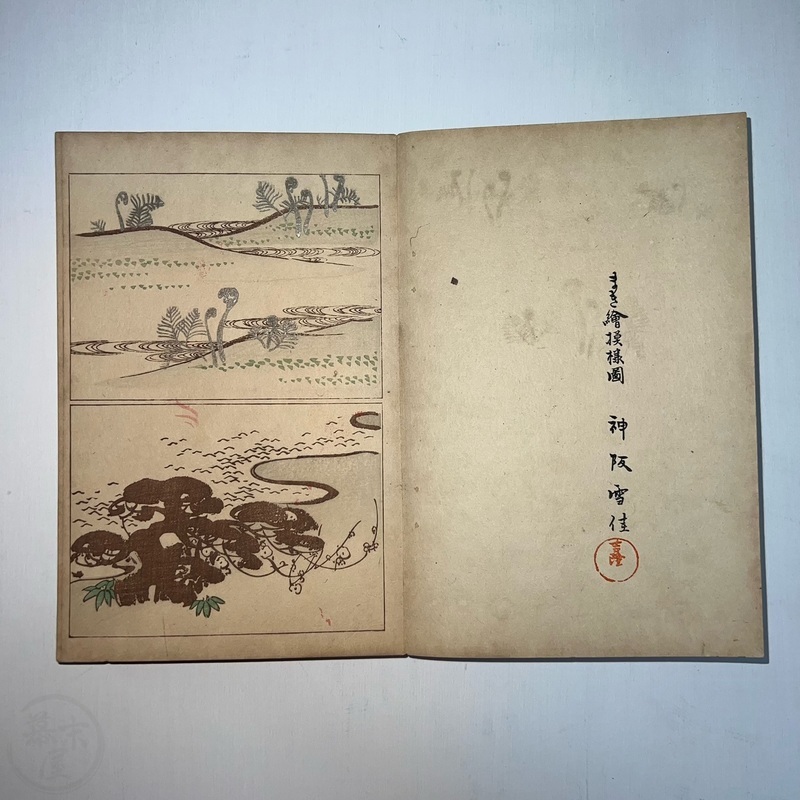 まき繪模様圖　神阪雪佳
吉隆